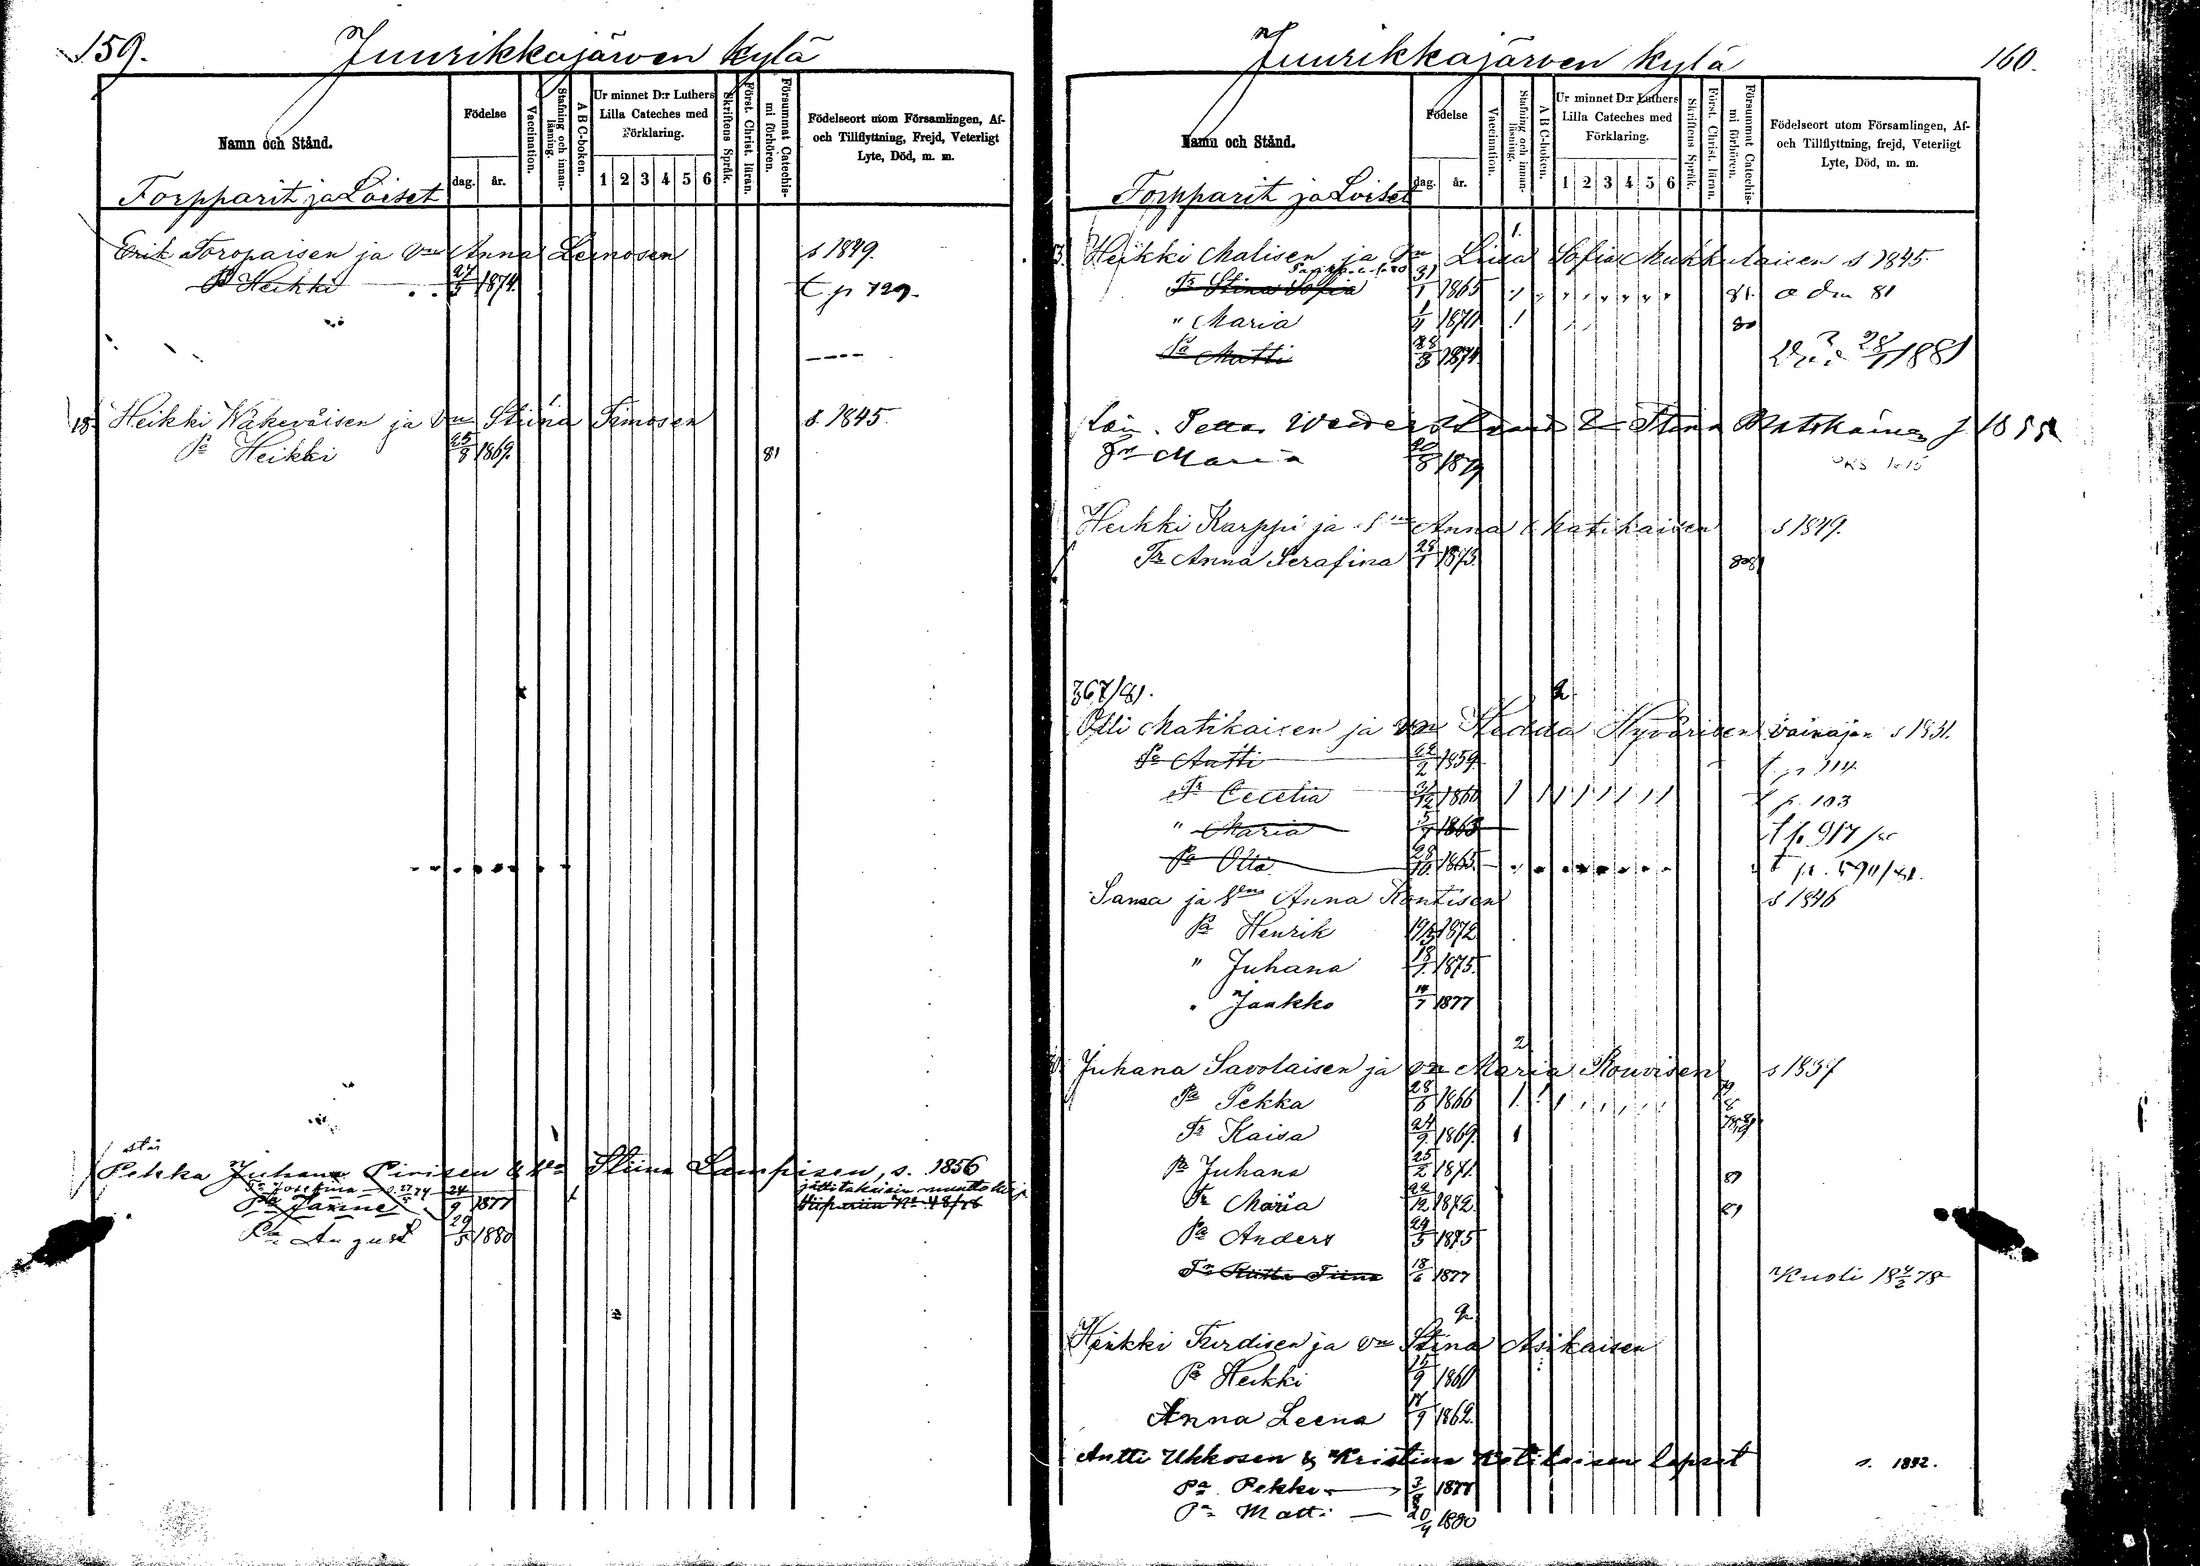 159.
Juurikkajärven kylä
Namn och Stånd.
Födelse
dag.
år.
Vaccination.
Stafning och innanläsning.
A B C-boken.
Ur minnet D:r Luthers Lilla Cateches med Förklaring.
1 2 3 4 5 6
Skriftens Språk.
Först. Christ. läran.
Försummat Catechismi förhören.
Födelseort utom Församlingen, Af- och Tillflyttning, Frejd, Veterligt Lyte, Död, m. m.
Torpparit ja Loiset
Erik Toropaisen ja vm Anna Leinosen s 1849.
Pa Heikki 27/5 1874. t p 729.
18. Heikki Wäkeväisen ja vm Stiina Timosen s. 1845.
Pa Heikki 25/8 1869. 81
Pekka Juhana Pirisen & Vm Stiina Lampisen, s. 1856
Tr Josefina
Pa Janne 24/9 1877
Wiipuriin No 48/78
Pa August 29/5 1880
Juurikkajärven kylä
160.
Namn och Stånd.
Födelse
dag.
år.
Vaccination.
Stafning och innanläsning.
A B C-boken.
Ur minnet D:r Luthers Lilla Cateches med Förklaring.
1 2 3 4 5 6
Skriftens Språk.
Först. Christ. läran.
Försummat Catechismi förhören.
Födelseort utom Församlingen, Af- och Tillflyttning, frejd, Veterligt Lyte, Död, m. m.
Torpparit ja Loiset
Heikki Malisen ja vm Liisa Sofia Mukkulaisen s 1845.
Tr Stina Sofia 31/1 1865 81.
" Maria 1870 80
Pa Matti 28/8 1874. 28/1 1881
Stina
Tr Maria 1879
Heikki Karppi ja Anna Matikaisen s 1849.
Tr Anna Serafina 28/1 1873.
367/81.
Olli Matikaisen ja vm Hedda Hyvärisen vainajan s 1831.
Pa Antti 22/2 1859. t. p 114.
Tr Cecelia 31/12 1860 t p. 103
" Maria 1863 t p. 917
Pa Otto 28/10 1865. t p. 590/81.
Sama ja Anna Kontisen s 1846
Pa Henrik 1872
" Juhana 18/1 1875.
" Jaakko 14/7 1877
Juhana Savolaisen ja vm Maria Rouvisen s 1837
Pa Pekka 28/6 1866
Tr Kaisa 24/9 1869.
Pa Juhana 25/2 1871. 81
Tr Maria 22/12 1872. 81
Pa Anders 29/5 1875
Tr Riitta Tiina 18/6 1877 Kuoli 18 4/2 78
Heikki Turdisen ja vm Stina Asikaisen
Pa Heikki 15/9 1860
Anna Leena 17/9 1862.
Antti Ukkosen & Kristina Kotilaisen lapset s. 1852.
Pa Pekka 3/8 1877
Pa Matti 20/4 1880